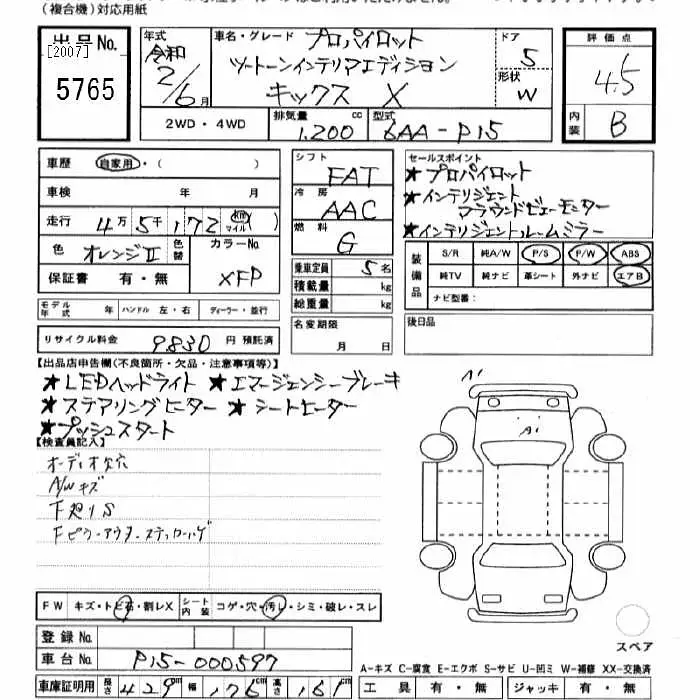 (複合機)対応用紙
出品No.
[2007]
5765
年式 令和 2/6月
車名・グレード プロパイロット
ツートーンインテリアエディション
キックス X
ドア 5
形状 W
評価点 4.5
内装 B
2WD・4WD
排気量 1,200 cc
型式 6AA-P15
車歴 自家用・( )
車検 年 月
走行 4万5千172 km マイル ( )
色 オレンジII 色替 カラーNo. XFP
保証書 有・無
シフト FAT
冷房 AAC
燃料 G
乗車定員 5名
積載量 kg
総重量 kg
セールスポイント
★プロパイロット
★インテリジェント
アラウンドビューモニター
★インテリジェントルームミラー
装備品 S/R 純A/W P/S P/W ABS
純TV 純ナビ 革シート 外ナビ エアB
ナビ型番:
モデル年式 ハンドル 左・右 ディーラー・並行
名変期限 月 日
後日品
リサイクル料金 9830 円 預託済
【出品店申告欄(不良箇所・欠品・注意事項等)】
★LEDヘッドライト ★エマージェンシーブレーキ
★ステアリングヒーター ★シートヒーター
★プッシュスタート
【検査員記入】
オーディオ欠穴
A/Wキズ
下廻りS
A1
A1
FW キズ・トビ石・割レX シート内装 コゲ・穴・汚レ・シミ・破レ・スレ
登録No.
車台No. P15-000597
車庫証明用 長さ 429cm 幅 176cm 高さ 161cm
スペア
A-キズ C-腐食 E-エクボ S-サビ U-凹ミ W-補修 XX-交換済
工具 有・無 ジャッキ 有・無